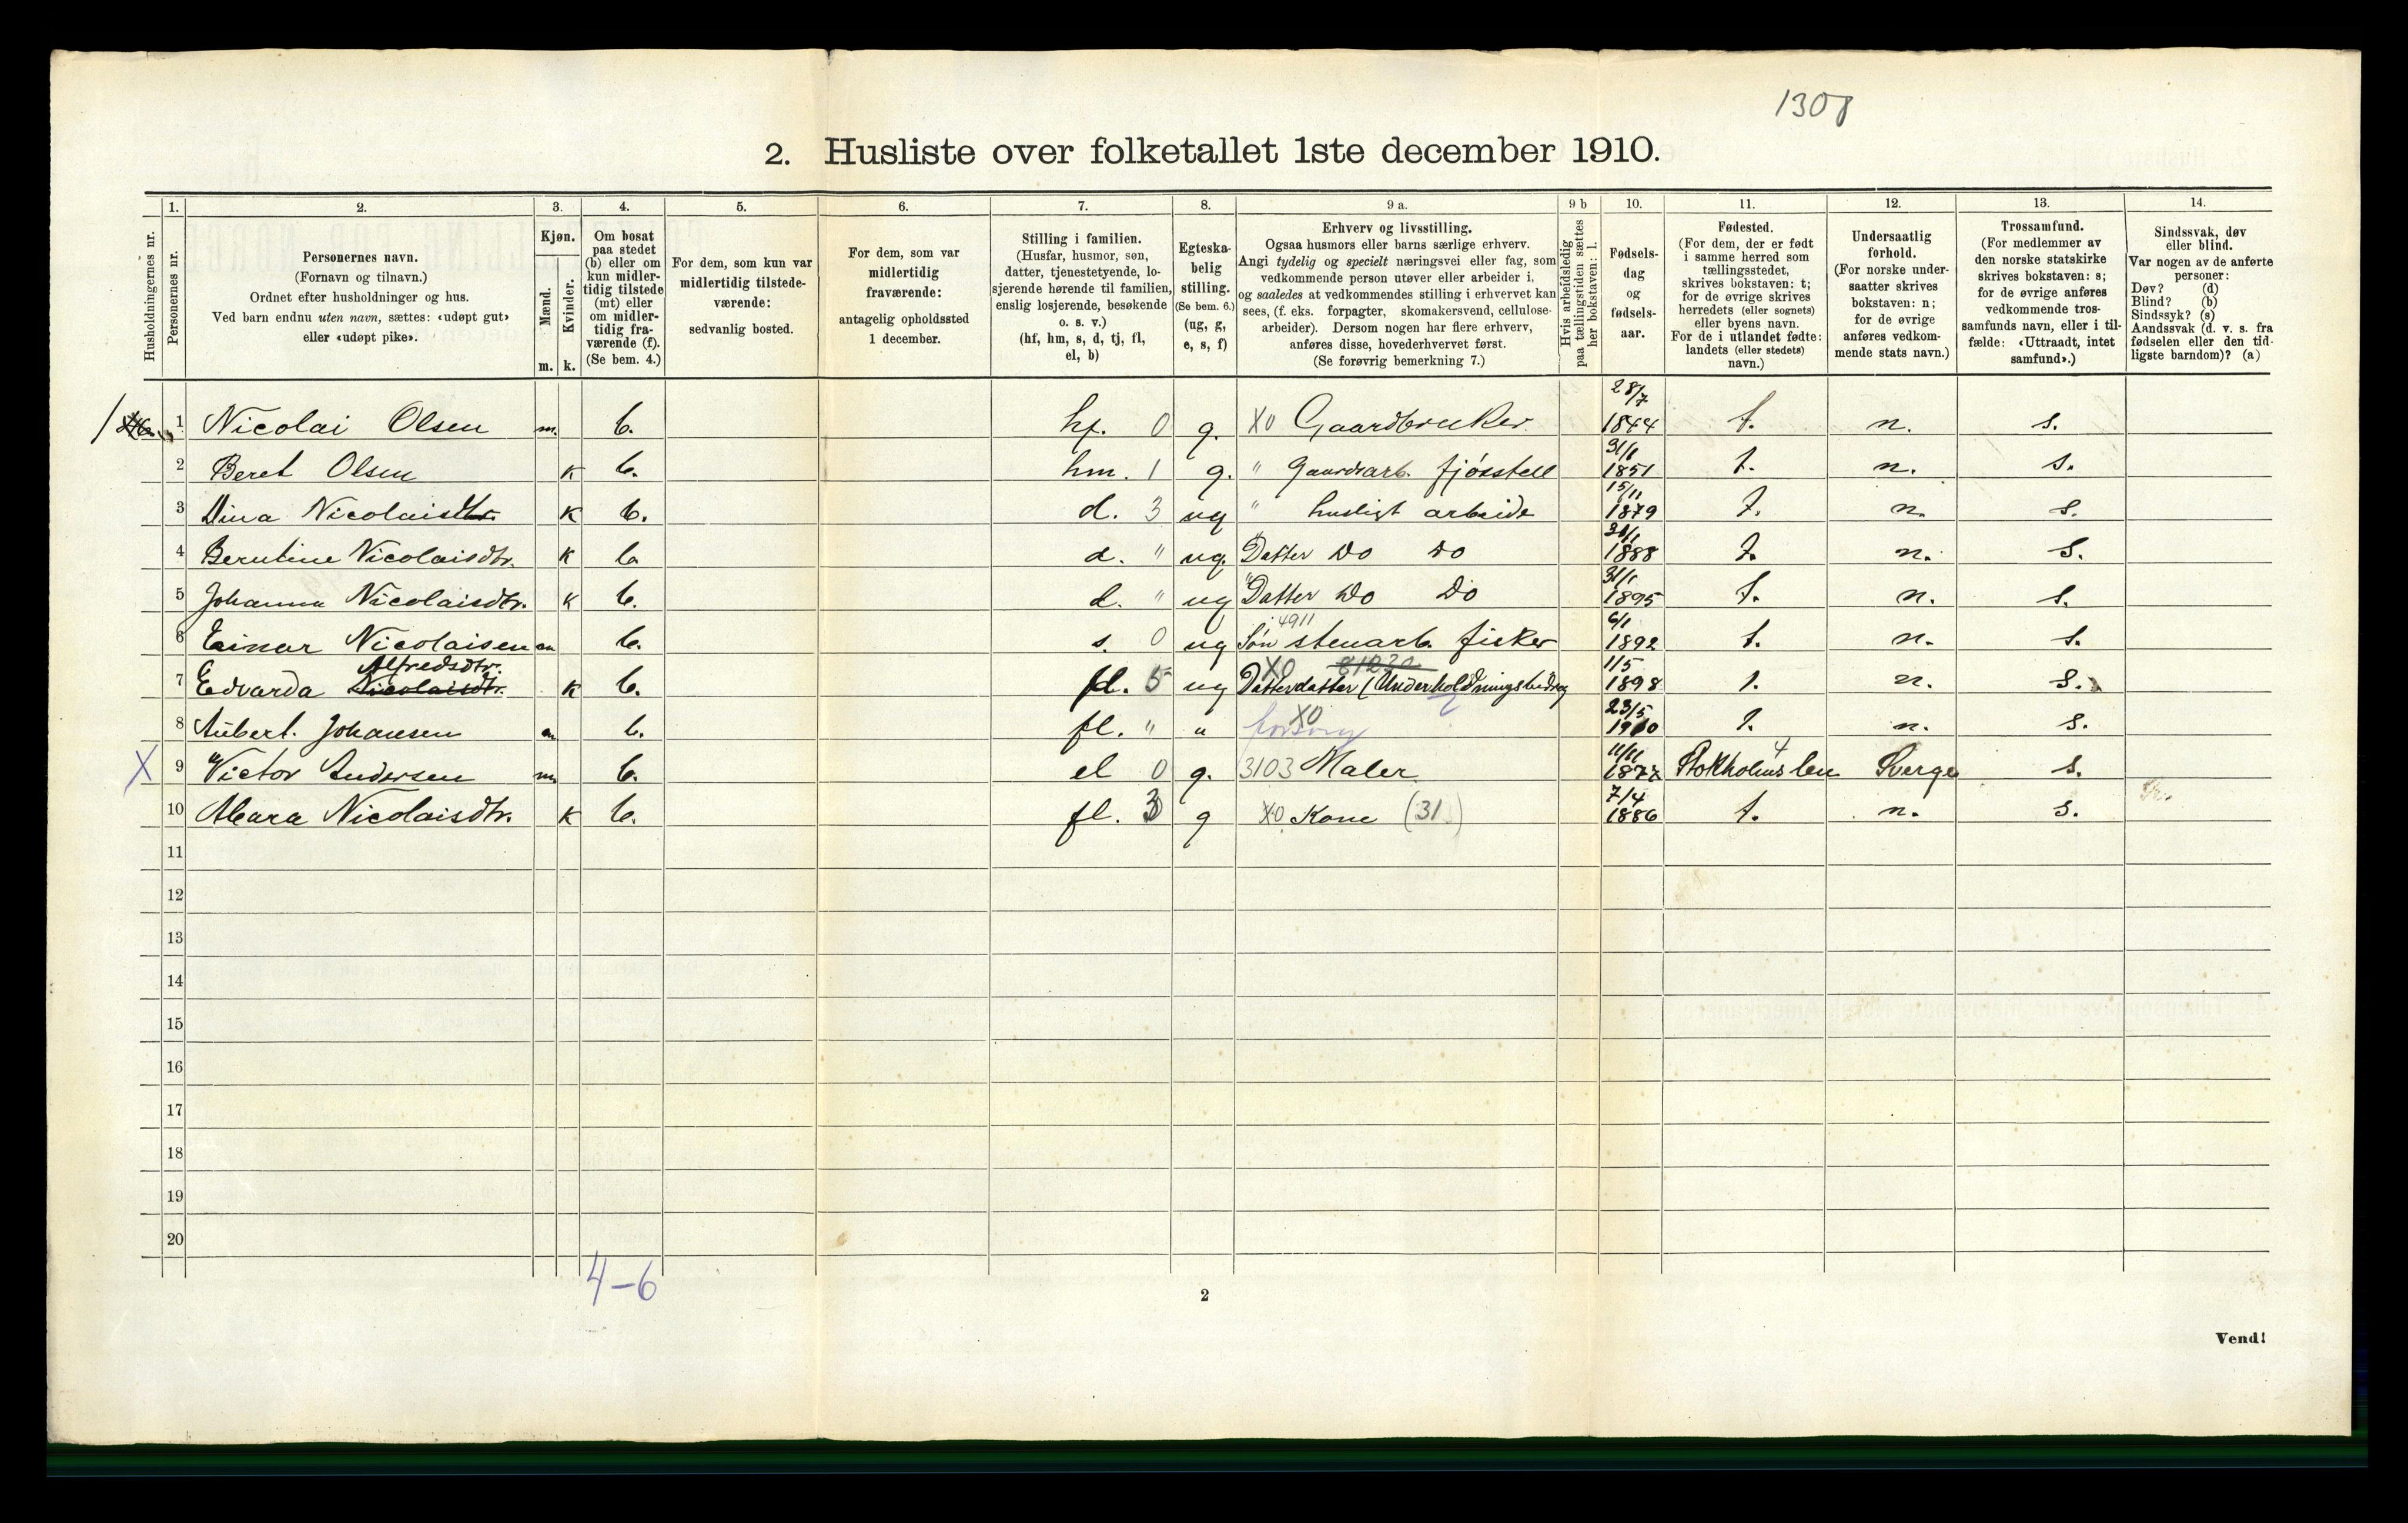 1308
2. Husliste over folketallet 1ste december 1910.
Husholdningernes nr.
1.
Personernes nr.
2.
Personernes navn.
(Fornavn og tilnavn.)
Ordnet efter husholdninger og hus.
Ved barn endnu uten navn, sættes: «udøpt gut»
eller «udøpt pike».
3.
Kjøn.
Mænd.
Kvinder.
m. k.
4.
Om bosat
paa stedet
(b) eller om
kun midler-
tidig tilstede
(mt) eller
om midler-
tidig fra-
værende (f).
(Se bem. 4.)
5.
For dem, som kun var
midlertidig tilstede-
værende:
sedvanlig bosted.
6.
For dem, som var
midlertidig
fraværende:
antagelig opholdssted
1 december.
7.
Stilling i familien.
(Husfar, husmor, søn,
datter, tjenestetyende, lo-
sjerende hørende til familien,
enslig losjerende, besøkende
o. s. v.)
(hf, hm, s, d, tj, fl,
el, b)
8.
Egteska-
belig
stilling.
(Se bem. 6.)
(ug, g,
e, s, f)
9 a.
Erhverv og livsstilling.
Ogsaa husmors eller barns særlige erhverv.
Angi tydelig og specielt næringsvei eller fag, som
vedkommende person utøver eller arbeider i,
og saaledes at vedkommendes stilling i erhvervet kan
sees, (f. eks. forpagter, skomakersvend, cellulose-
arbeider). Dersom nogen har flere erhverv,
anføres disse, hovederhvervet først.
(Se forøvrig bemerkning 7.)
9 b
Hvis arbeidsledig
paa tællingstiden sættes
her bokstaven: l.
10.
Fødsels-
dag
og
fødsels-
aar.
11.
Fødested.
(For dem, der er født
i samme herred som
tællingsstedet,
skrives bokstaven: t;
for de øvrige skrives
herredets (eller sognets)
eller byens navn.
For de i utlandet fødte:
landets (eller stedets)
navn.)
12.
Undersaatlig
forhold.
(For norske under-
saatter skrives
bokstaven: n;
for de øvrige
anføres vedkom-
mende stats navn.)
13.
Trossamfund.
(For medlemmer av
den norske statskirke
skrives bokstaven: s;
for de øvrige anføres
vedkommende tros-
samfunds navn, eller i til-
fælde: «Uttraadt, intet
samfund».)
14.
Sindssvak, døv
eller blind.
Var nogen av de anførte
personer:
Døv? (d)
Blind? (b)
Sindssyk? (s)
Aandssvak (d. v. s. fra
fødselen eller den tid-
ligste barndom)? (a)
1 Nicolai Olsen m. b. hf. 0 g. X0 Gaardbruker 28/7 1844 t. n. s.
2 Beret Olsen k b. hm. 1 g. " Gaardsarb. fjøsstell 31/1 1851 t. n. s.
3 Dina Nicolaisdtr. k b. d. 3 ug " husligt arbeide 15/11 1879 t. n. s.
4 Berntine Nicolaisdtr. k b d. " ug. Datter Do Do 1888 t. n. s.
5 Johanna Nicolaisdtr. k b. d. " ug Datter Do Do 31/1 1895 t. n. s.
6 Einar Nicolaisen m b. s. 0 ug Søn 4911 stenarb. fisker 6/1 1892 t. n. s.
7 Edvarda Nicolaisdtr. Alfredsdtr. k b. fl. 5 ug X0 Datterdatter (Underholdningsbidrag 1/5 1898 t. n. s.
8 Aubert Johansen m b. fl. " " X0 forsørg 23/5 1910 t. n. s.
X 9 Victor Andersen m. b. el 0 g. 3103 Maler 11/11 Stokholms len 4 Sverge s.
10 Mara Nicolaisdtr. k b. fl. 3 g X0 Kone (31) 7/4 1886 t. n. s.
11
12
13
14
15
16
17
18
19
20
4-6
2
Vend!